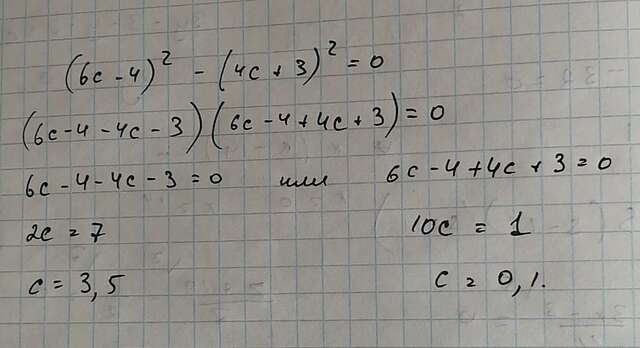 (6c - 4)² - (4c + 3)² = 0
(6c - 4 - 4c - 3)(6c - 4 + 4c + 3) = 0
6c - 4 - 4c - 3 = 0 или 6c - 4 + 4c + 3 = 0
2c = 7 10c = 1
c = 3,5 c = 0,1.